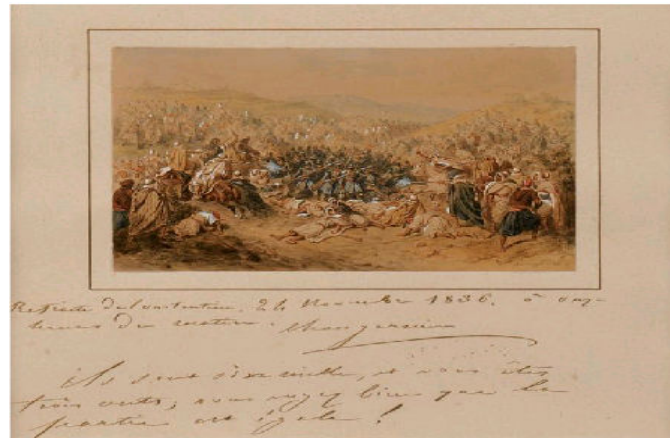 Retraite de Constantine. 24 Novembre 1836. à onze
heures du matin. Changarnier
Ils sont six mille, et vous êtes
trois cents; vous voyez bien que la
partie est égale!